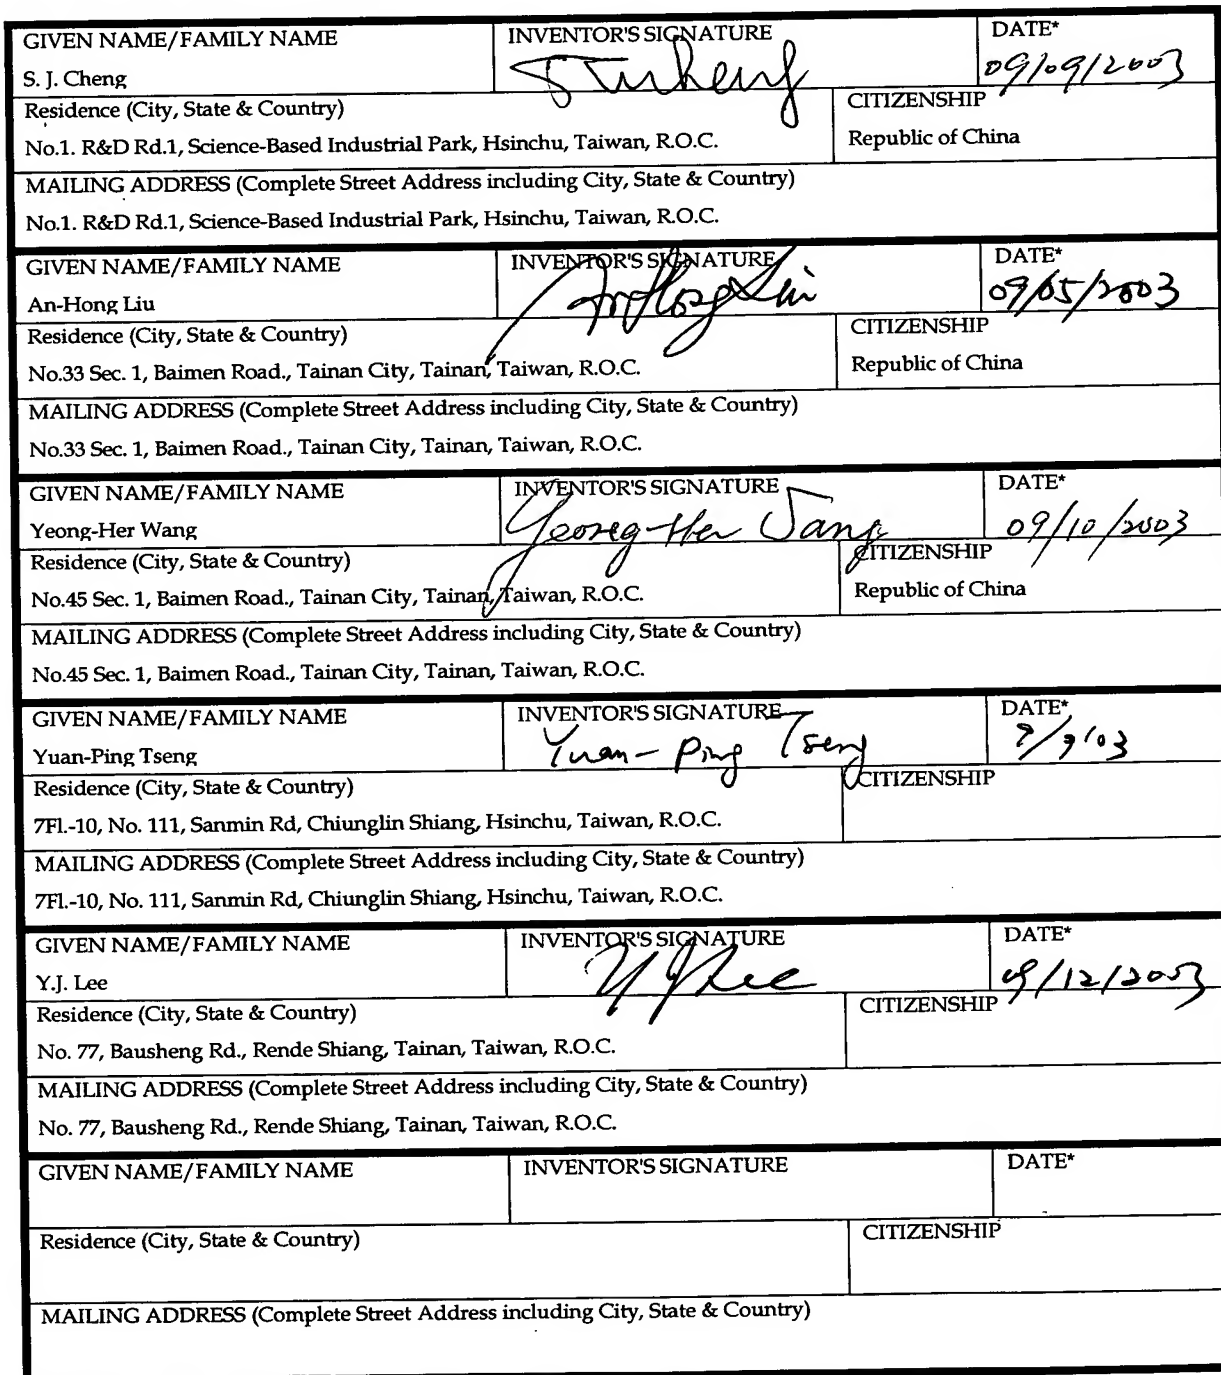 GIVEN NAME/FAMILY NAME INVENTOR'S SIGNATURE DATE*
S. J. Cheng 09/09/2003
Residence (City, State & Country) CITIZENSHIP
No.1. R&D Rd.1, Science-Based Industrial Park, Hsinchu, Taiwan, R.O.C. Republic of China
MAILING ADDRESS (Complete Street Address including City, State & Country)
No.1. R&D Rd.1, Science-Based Industrial Park, Hsinchu, Taiwan, R.O.C.
GIVEN NAME/FAMILY NAME INVENTOR'S SIGNATURE DATE*
An-Hong Liu An Hong Liu 09/05/2003
Residence (City, State & Country) CITIZENSHIP
No.33 Sec. 1, Baimen Road., Tainan City, Tainan, Taiwan, R.O.C. Republic of China
MAILING ADDRESS (Complete Street Address including City, State & Country)
No.33 Sec. 1, Baimen Road., Tainan City, Tainan, Taiwan, R.O.C.
GIVEN NAME/FAMILY NAME INVENTOR'S SIGNATURE DATE*
Yeong-Her Wang Yeong-Her Wang 09/10/2003
Residence (City, State & Country) CITIZENSHIP
No.45 Sec. 1, Baimen Road., Tainan City, Tainan, Taiwan, R.O.C. Republic of China
MAILING ADDRESS (Complete Street Address including City, State & Country)
No.45 Sec. 1, Baimen Road., Tainan City, Tainan, Taiwan, R.O.C.
GIVEN NAME/FAMILY NAME INVENTOR'S SIGNATURE DATE*
Yuan-Ping Tseng Yuan-Ping Tseng
Residence (City, State & Country) CITIZENSHIP
7Fl.-10, No. 111, Sanmin Rd, Chiunglin Shiang, Hsinchu, Taiwan, R.O.C.
MAILING ADDRESS (Complete Street Address including City, State & Country)
7Fl.-10, No. 111, Sanmin Rd, Chiunglin Shiang, Hsinchu, Taiwan, R.O.C.
GIVEN NAME/FAMILY NAME INVENTOR'S SIGNATURE DATE*
Y.J. Lee Y J Lee 09/12/2003
Residence (City, State & Country) CITIZENSHIP
No. 77, Bausheng Rd., Rende Shiang, Tainan, Taiwan, R.O.C.
MAILING ADDRESS (Complete Street Address including City, State & Country)
No. 77, Bausheng Rd., Rende Shiang, Tainan, Taiwan, R.O.C.
GIVEN NAME/FAMILY NAME INVENTOR'S SIGNATURE DATE*
Residence (City, State & Country) CITIZENSHIP
MAILING ADDRESS (Complete Street Address including City, State & Country)